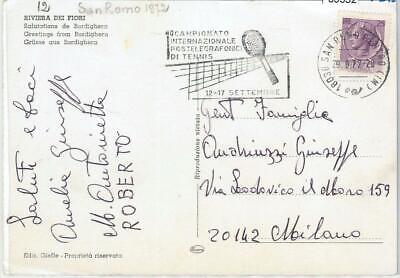 12
SanRemo 1972
RIVIERA DEI FIORI
Salutations de Bordighera
Greetings from Bordighera
Grüsse aus Bordighera
1° CAMPIONATO
INTERNAZIONALE
POSTELEGRAFONICI
DI TENNIS
12-17 SETTEMBRE
18038 SAN REMO
Saluti e baci
Amelia Giuseppe
M Antonietta
ROBERTO
Gent Famiglia
Giuseppe
Via Lodovico il Moro 159
20142 Milano
Riproduzione vietata
Ediz. Gieffe - Proprietà riservata